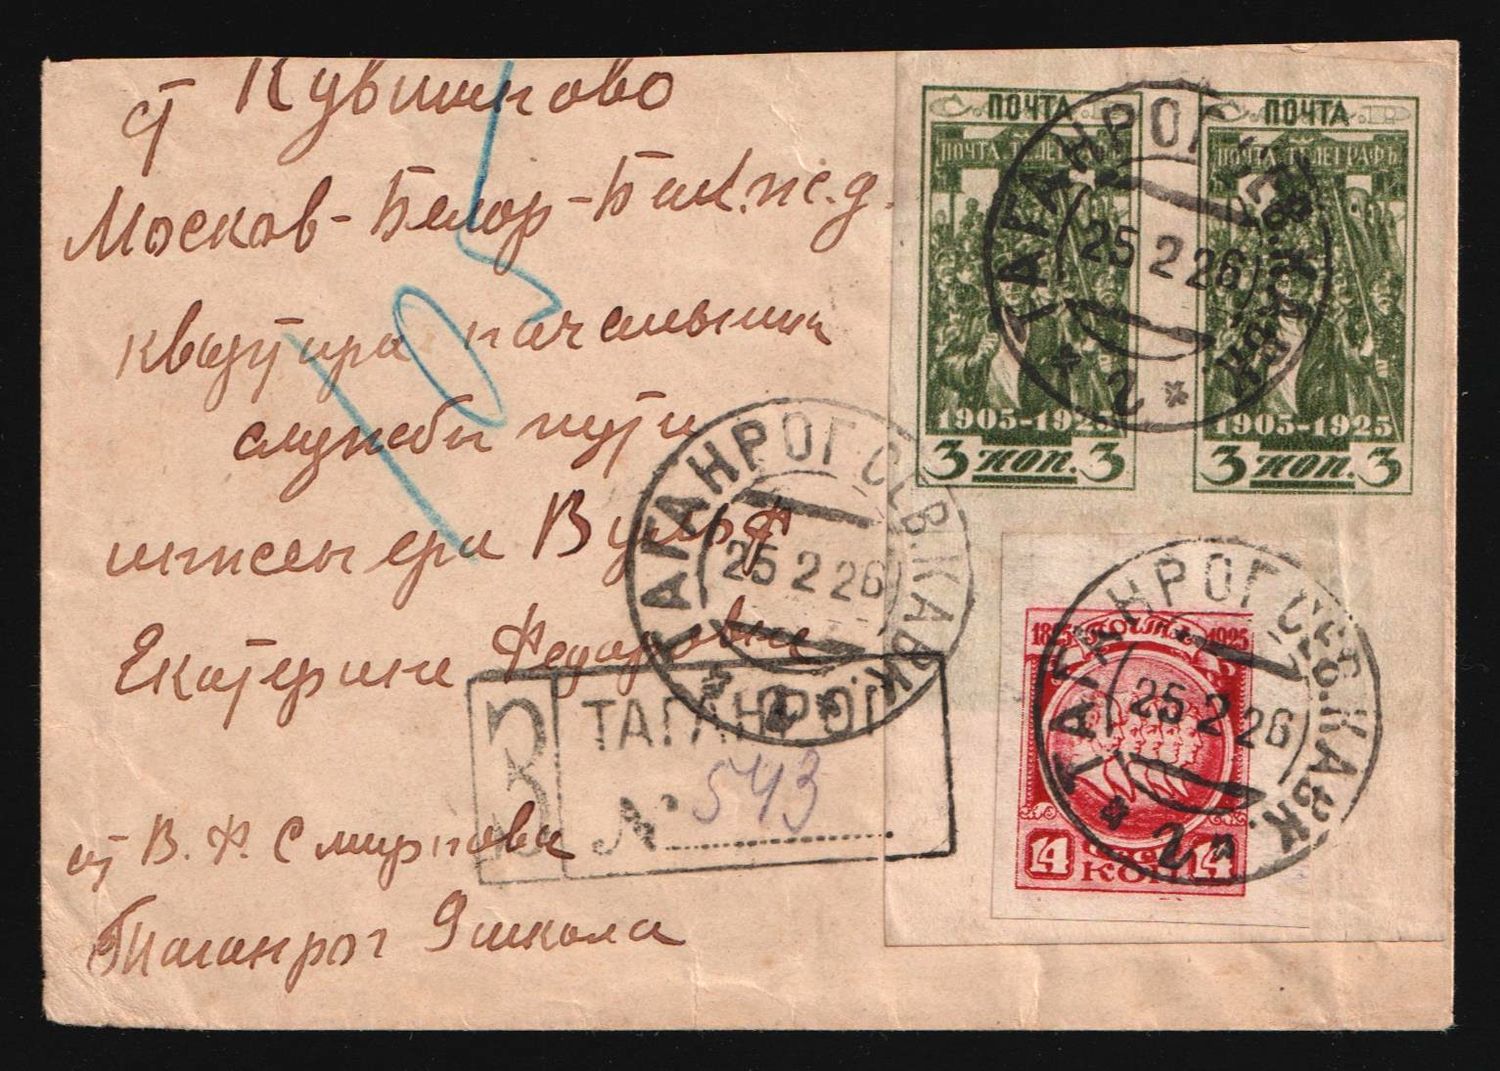 ст Кувшиново
Москов-Белор-Балт.ж.д.
квартира начальника
службы пути
инженера Вульф
Екатерине Федоровне
от В. Ф. Смирнова
Таганрог 9 школа
ПОЧТА
ПОЧТА ТЕЛЕГРАФЪ
1905-1925
3 коп. 3
ПОЧТА
ПОЧТА ТЕЛЕГРАФЪ
1905-1925
3 коп. 3
ТАГАНРОГ СЕВ.КАВК.
25 2 26
2
ТАГАНРОГ СЕВ.КАВК.
25 2 26
2
З ТАГАНРОГ
№ 543
1825 ПОЧТА 1925
14 КОП 14
ТАГАНРОГ СЕВ.КАВК.
25 2 26
2